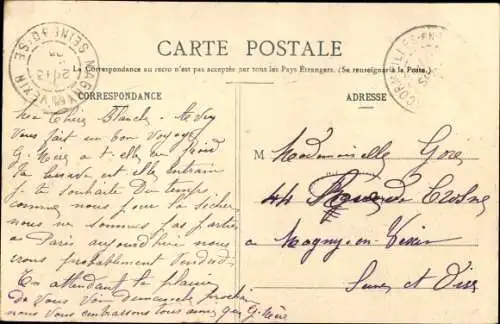 CARTE POSTALE
La Correspondance au recto n'est pas acceptée par tous les Pays Étrangers. (Se renseigner à la Poste.)
CORRESPONDANCE
ADRESSE
MAGNY-EN-VEXIN
SEINE-ET-OISE
CORMEILLES-EN-
Ma Chère Blanche
Vous fait un bon voyage
G. Mère a t-elle eu froid
la est elle en train
je te souhaite du temps
comme nous pour la sécher
nous ne sommes pas parties
à Paris aujourd'hui nous
irons probablement Vendredi
En attendant le plaisir
de vous voir Dimanche prochain
nous vous embrassons tous ainsi que G. Mère
M Mademoiselle Gore
44 de Crosne
à Magny-en-Vexin
Seine et Oise